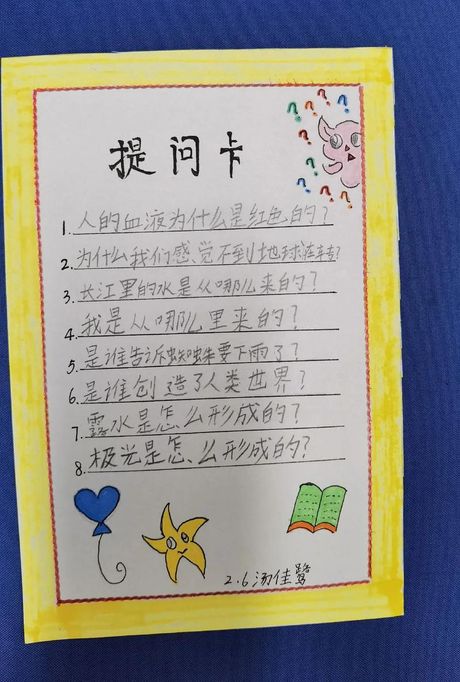 提问卡
1. 人的血液为什么是红色的?
2. 为什么我们感觉不到地球在转?
3. 长江里的水是从哪儿来的?
4. 我是从哪儿里来的?
5. 是谁告诉蜘蛛要下雨了?
6. 是谁创造了人类世界?
7. 露水是怎么形成的?
8. 极光是怎么形成的?
2.6 汤佳鹭
? ? ? ? ? ? ? ? ?